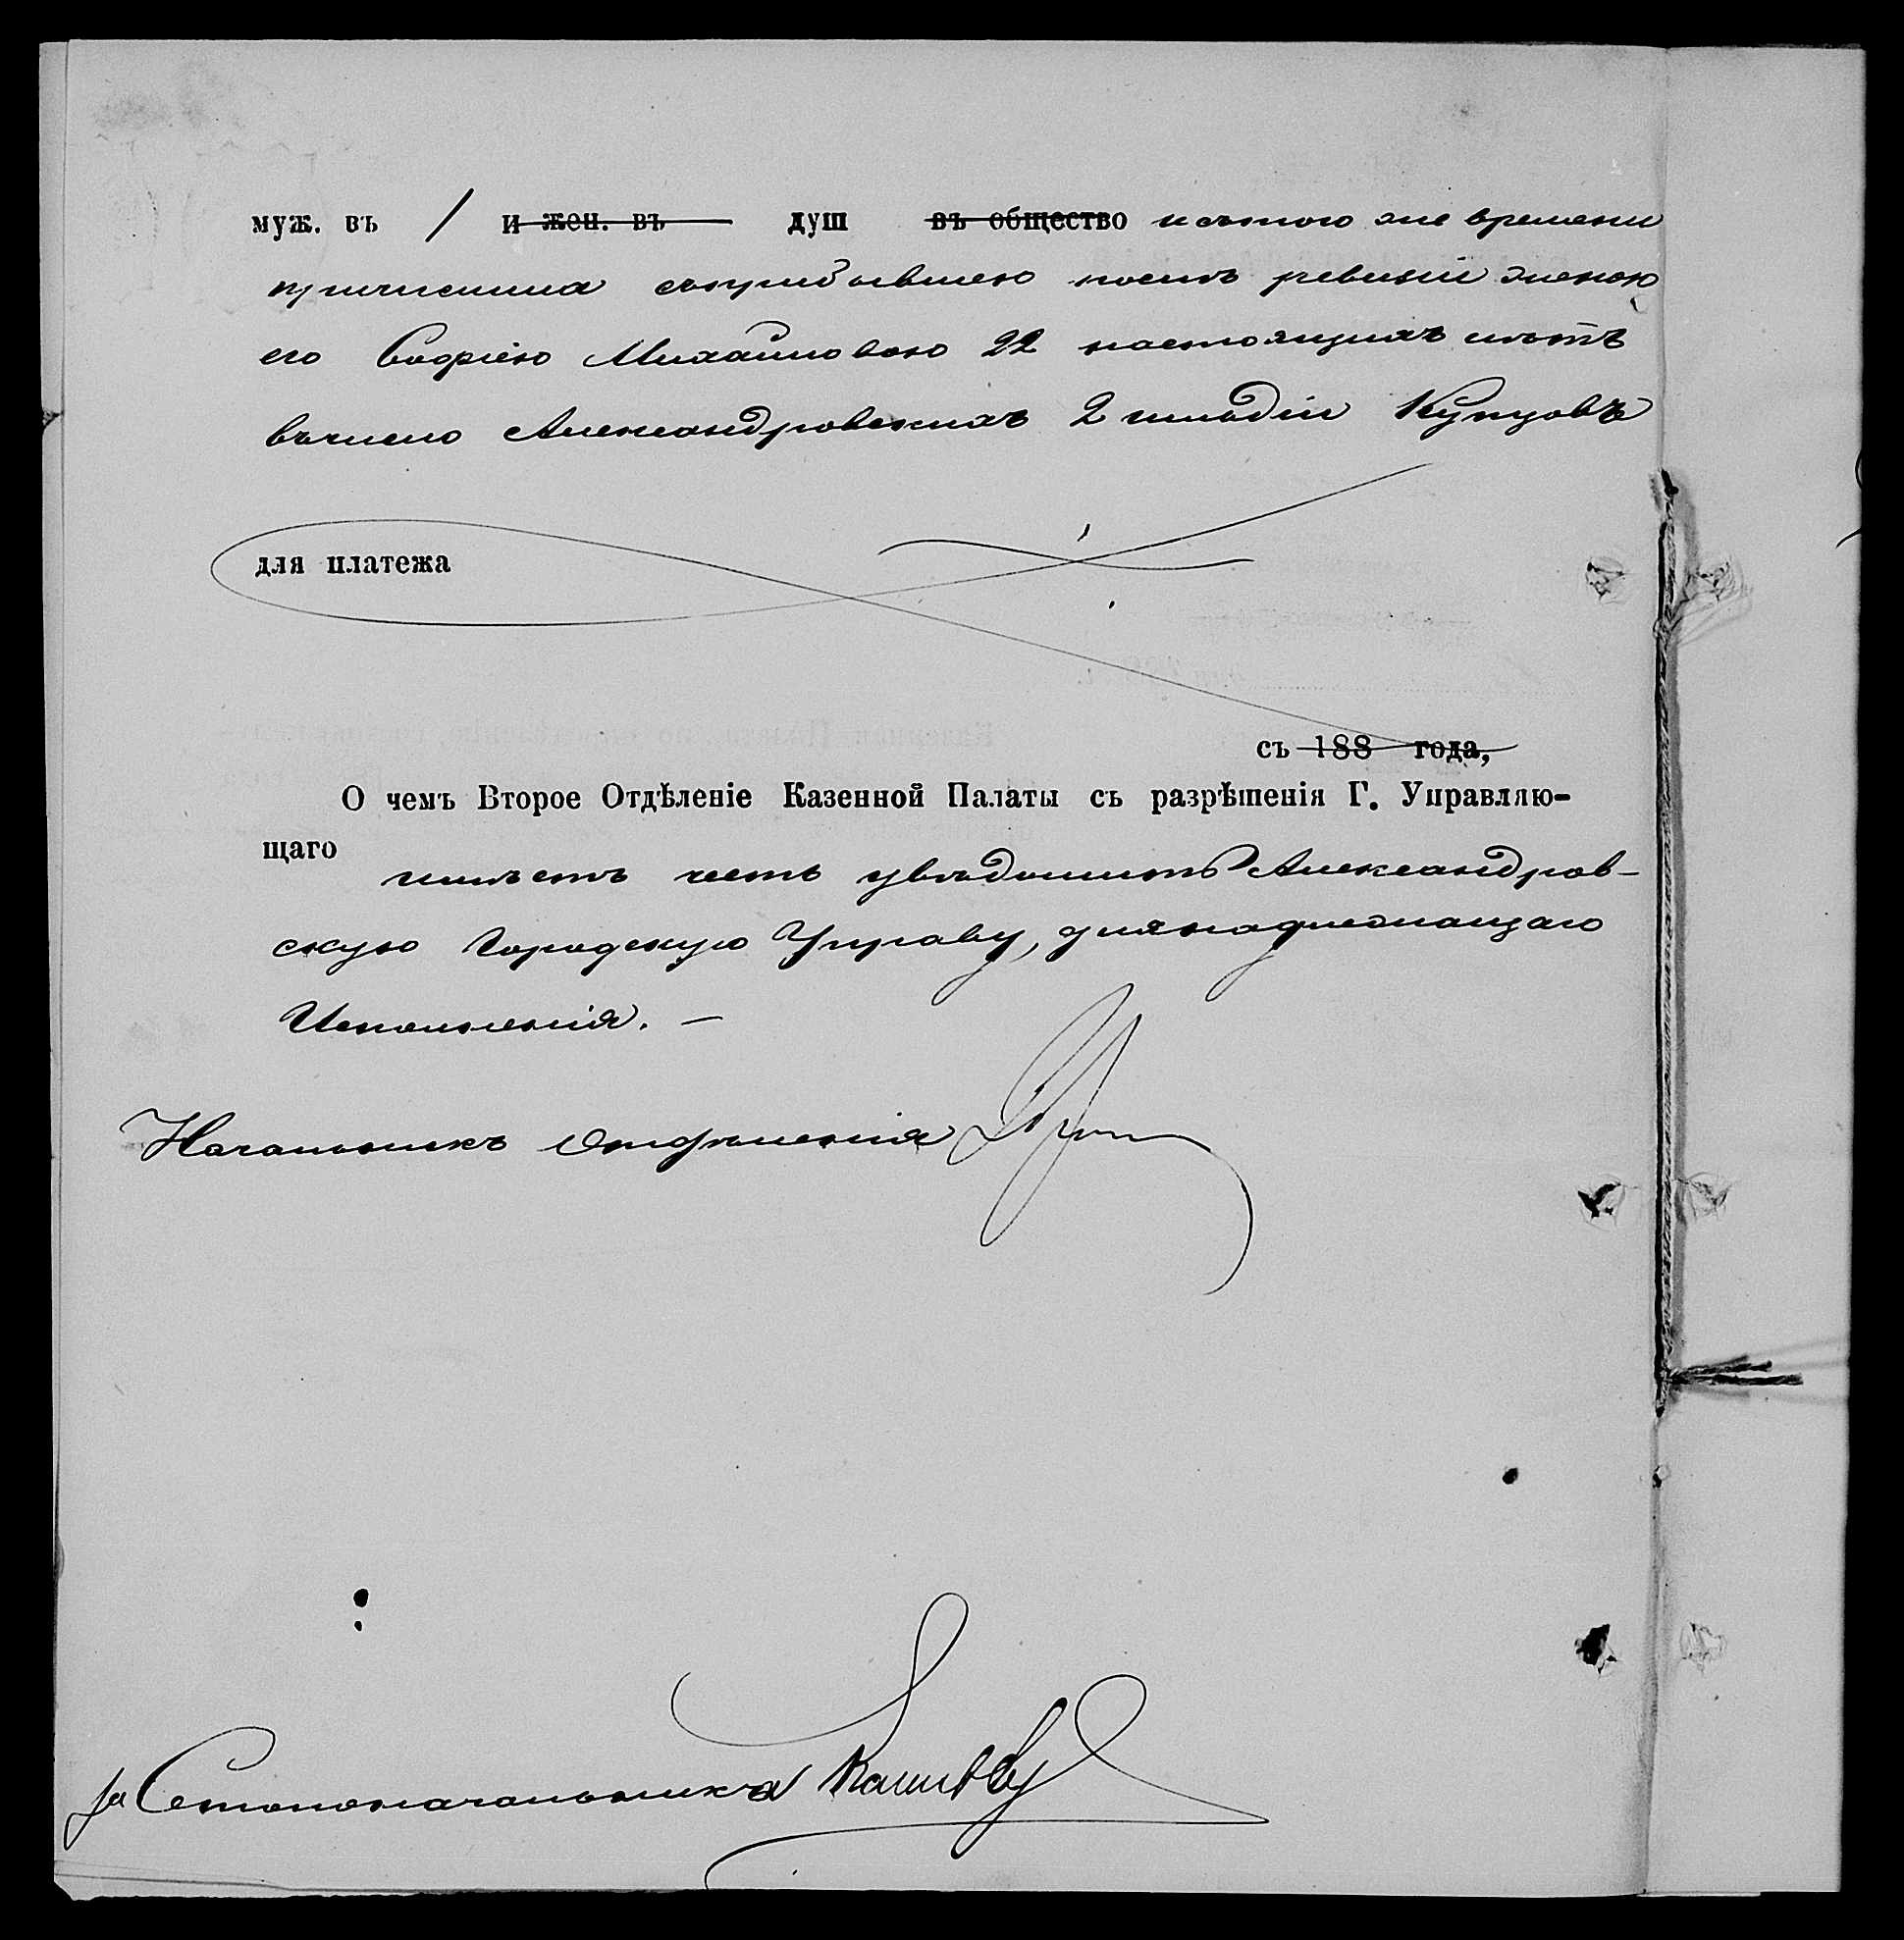 муж. въ 1 и жен. въ душ въ общество и съ того же времени
причислена съ прибывшею послѣ ревизіи женою
его Софіею Михайловою 22 настоящихъ лѣтъ
въ число Александровскихъ 2 гильдіи Купцовъ
для платежа
съ 188 года,
О чемъ Второе Отдѣленіе Казенной Палаты съ разрѣшенія Г. Управляю-
щаго
имѣетъ честь увѣдомить Александров-
скую Городскую Управу, для надлежащаго
Исполненія. —
Начальникъ Отдѣленія
За Столоначальника